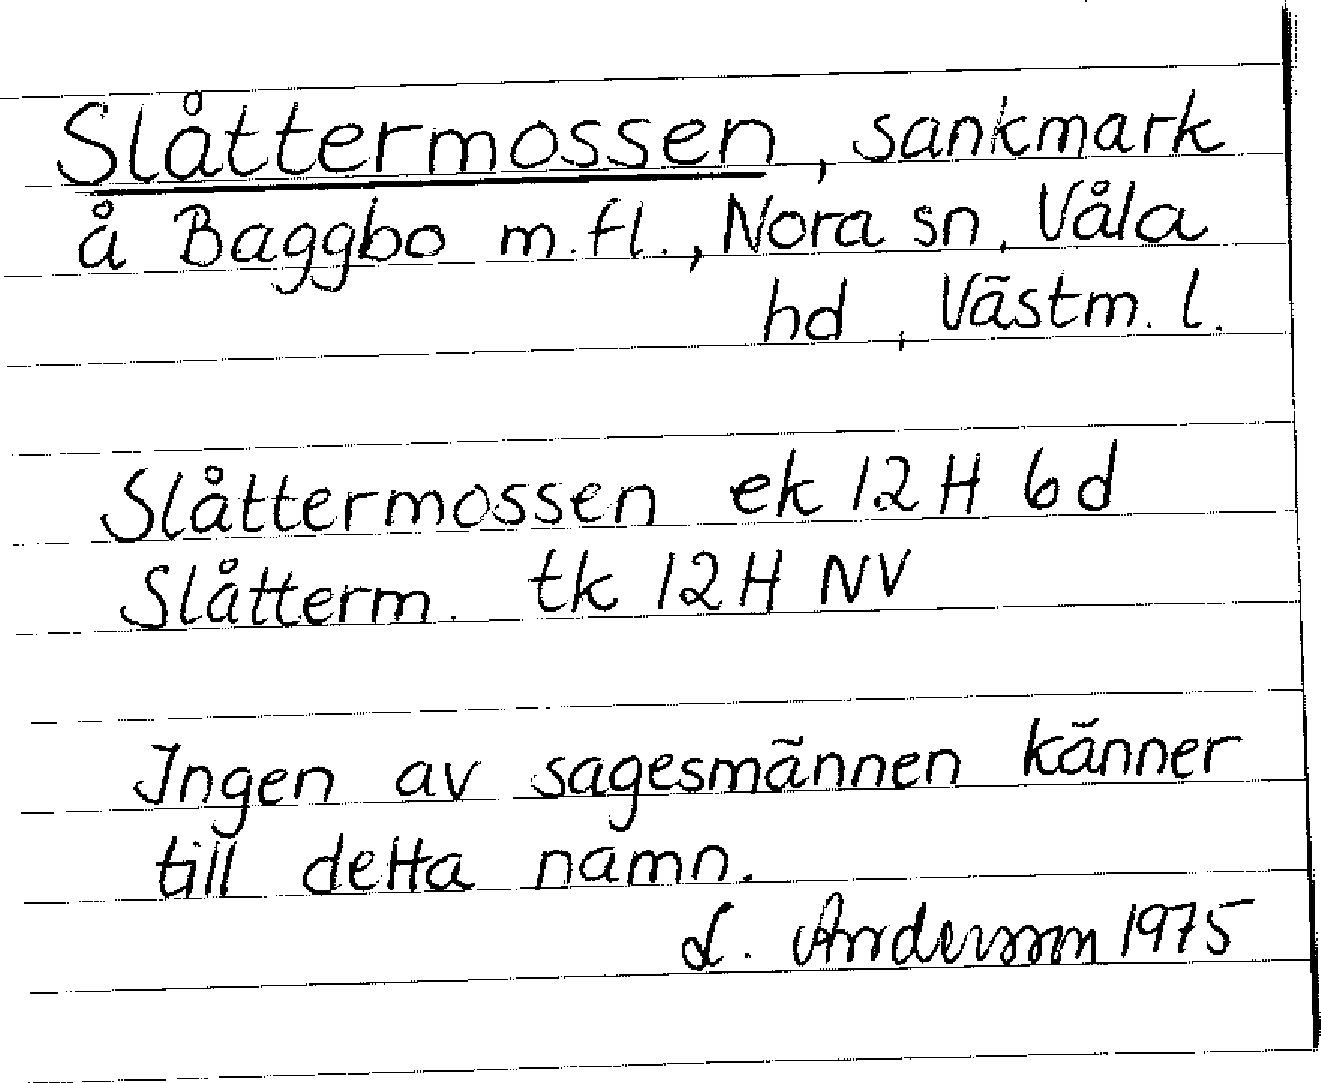 Slåttermossen, sankmark
å Baggbo m.fl., Nora sn, Våla
hd, Västm. l.
Slåttermossen ek 12 H 6 d
Slåtterm. tk 12 H NV
Ingen av sagesmännen känner
till detta namn.
L. Andersson 1975